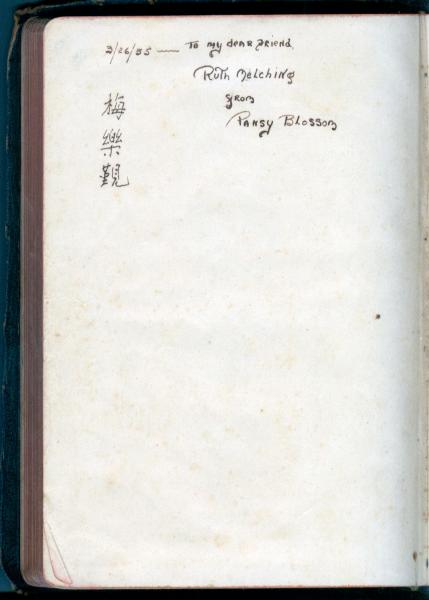 3/26/55 — To my dear Friend,
Ruth Melching
From
Pansy Blossom
梅樂觀